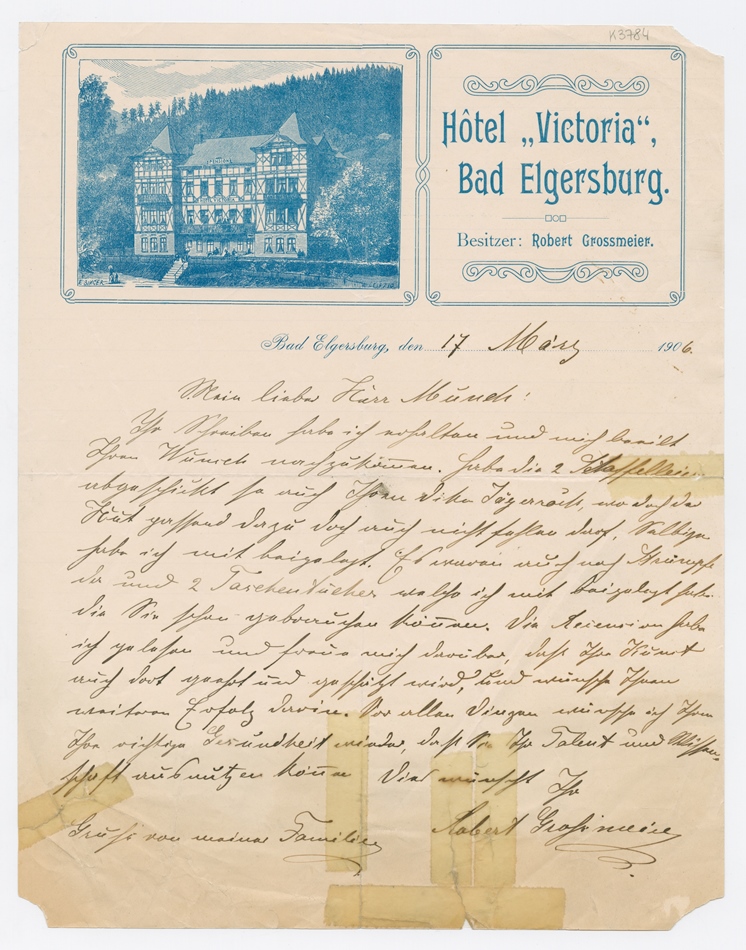 K3784
Hôtel „Victoria“,
Bad Elgersburg.
Besitzer: Robert Grossmeier.
Bad Elgersburg, den 17 März 1906.
Mein lieber Herr Munch!
Ihr Schreiben habe ich erhalten und mich beeilt
Ihren Wunsch nachzukom̄en. Habe die 2
abgeschikt so auch Ihren Jägerrock, wo doch der
Hut passend dazu doch auch nicht fehlen darf, Selbigen
habe ich mit beigelegt. Es waren auch noch Strümpfe
da und 2 Taschentücher welche ich mit beigelegt habe
die Sie schon gebrauchen kön̄en. Die Recension habe
ich gelesen und freue mich darüber, daß Ihre Kunst
auch dort geehrt und geschätzt wird, und wünsche Ihnen
weiteren Erfolg darin. Vor allen Dingen wünsche ich Ihnen
Ihre richtige Gesundheit wieder, daß Sie Ihr Talent und Wissen-
schaft ausnutzen kön̄en Dies wünscht Ihr
Gruß von meiner Familie Robert Grossmeier